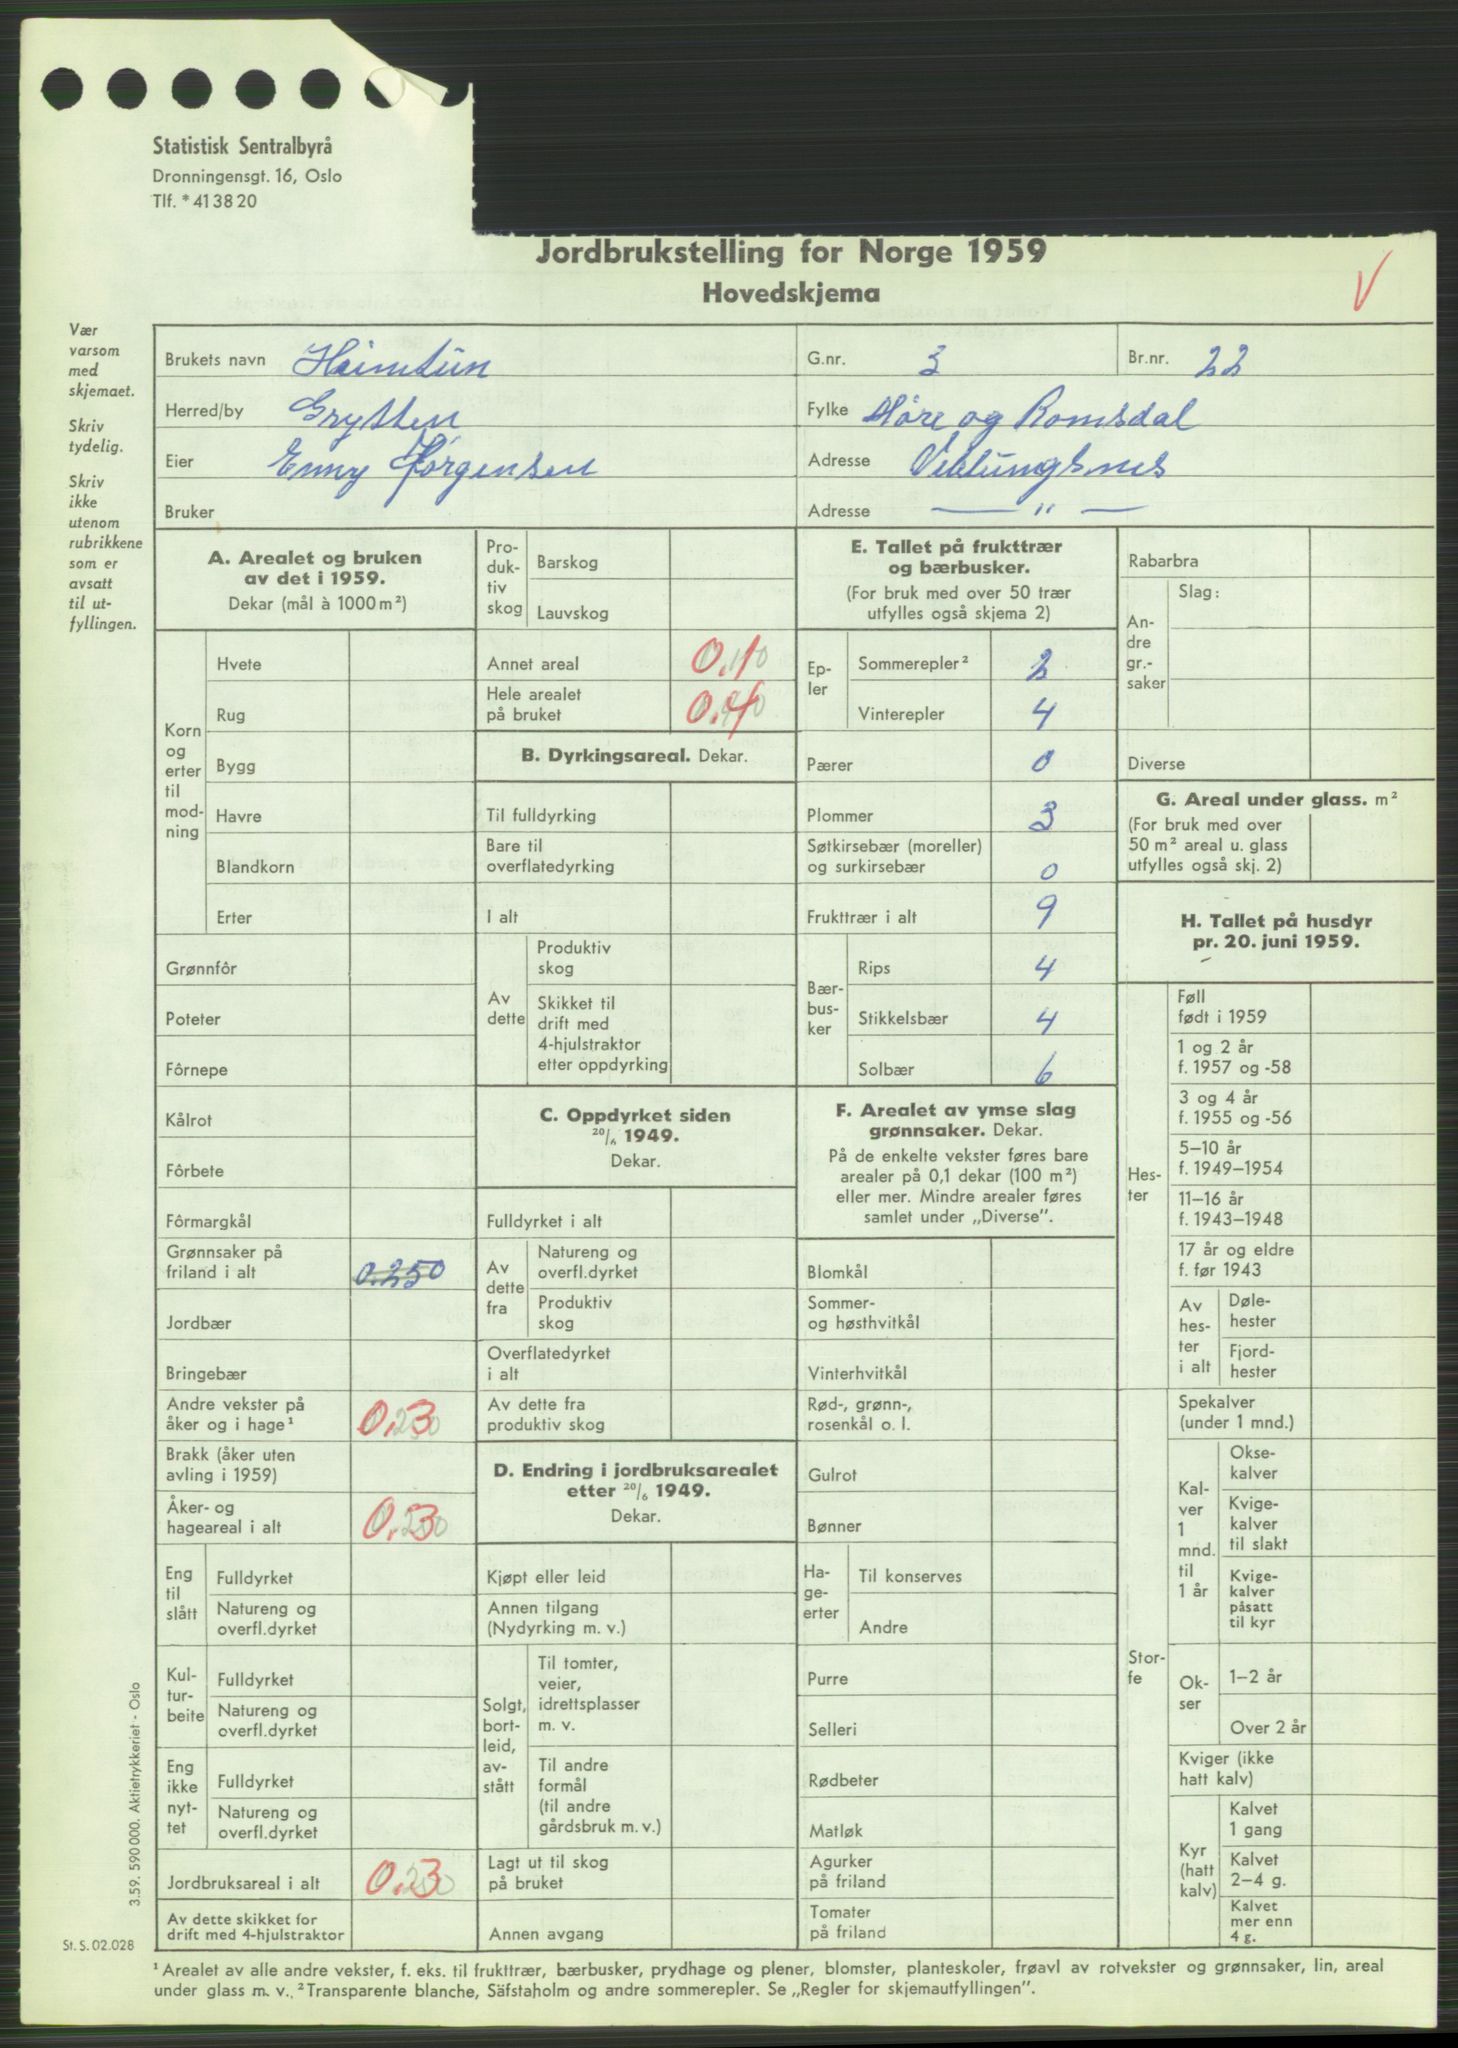 Statistisk Sentralbyrå
Dronningensgt. 16, Oslo
Tlf. * 41 38 20
Jordbrukstelling for Norge 1959
Hovedskjema
V
Vær
varsom
med
skjemaet.
Skriv
tydelig.
Skriv
ikke
utenom
rubrikkene
som er
avsatt
til ut-
fyllingen.
Brukets navn Heimtun G.nr. 3 Br.nr. 22
Herred/by Grytten Fylke Møre og Romsdal
Eier Enny Jørgensen Adresse Veblungsnes
Bruker Adresse — " —
A. Arealet og bruken
av det i 1959.
Dekar (mål à 1000 m²)
Korn
og
erter
til
mod-
ning
Hvete
Rug
Bygg
Havre
Blandkorn
Erter
Grønnfôr
Poteter
Fôrnepe
Kålrot
Fôrbete
Fôrmargkål
Grønnsaker på
friland i alt 0.250
Jordbær
Bringebær
Andre vekster på
åker og i hage¹ 0.3
Brakk (åker uten
avling i 1959)
Åker- og
hageareal i alt 0.3
Eng
til
slått
Fulldyrket
Natureng og
overfl.dyrket
Kul-
tur-
beite
Fulldyrket
Natureng og
overfl.dyrket
Eng
ikke
nyt-
tet
Fulldyrket
Natureng og
overfl.dyrket
Jordbruksareal i alt 0.3
Av dette skikket for
drift med 4-hjulstraktor
Pro-
duk-
tiv
skog
Barskog
Lauvskog
Annet areal 0.1
Hele arealet
på bruket 0.4
B. Dyrkingsareal. Dekar.
Til fulldyrking
Bare til
overflatedyrking
I alt
Av
dette
Produktiv
skog
Skikket til
drift med
4-hjulstraktor
etter oppdyrking
C. Oppdyrket siden
20/6 1949.
Dekar.
Fulldyrket i alt
Av
dette
fra
Natureng og
overfl.dyrket
Produktiv
skog
Overflatedyrket
i alt
Av dette fra
produktiv skog
D. Endring i jordbruksarealet
etter 20/6 1949.
Dekar.
Kjøpt eller leid
Annen tilgang
(Nydyrking m. v.)
Solgt,
bort-
leid,
av-
stått
Til tomter,
veier,
idrettsplasser
m. v.
Til andre
formål
(til andre
gårdsbruk m. v.)
Lagt ut til skog
på bruket
Annen avgang
E. Tallet på frukttrær
og bærbusker.
(For bruk med over 50 trær
utfylles også skjema 2)
Ep-
ler
Sommerepler² 2
Vinterepler 4
Pærer 0
Plommer 3
Søtkirsebær (moreller)
og surkirsebær 0
Frukttrær i alt 9
Bær-
bus-
ker
Rips 4
Stikkelsbær 4
Solbær 6
F. Arealet av ymse slag
grønnsaker. Dekar.
På de enkelte vekster føres bare
arealer på 0,1 dekar (100 m²)
eller mer. Mindre arealer føres
samlet under „Diverse”.
Blomkål
Sommer-
og høsthvitkål
Vinterhvitkål
Rød-, grønn-,
rosenkål o. l.
Gulrot
Bønner
Ha-
ge-
erter
Til konserves
Andre
Purre
Selleri
Rødbeter
Matløk
Agurker
på friland
Tomater
på friland
Rabarbra
An-
dre
gr.-
saker
Slag:
Diverse
G. Areal under glass. m²
(For bruk med over
50 m² areal u. glass
utfylles også skj. 2)
H. Tallet på husdyr
pr. 20. juni 1959.
Hes-
ter
Føll
født i 1959
1 og 2 år
f. 1957 og -58
3 og 4 år
f. 1955 og -56
5–10 år
f. 1949–1954
11–16 år
f. 1943–1948
17 år og eldre
f. før 1943
Av
hes-
ter
i alt
Døle-
hester
Fjord-
hester
Stor-
fe
Spekalver
(under 1 mnd.)
Kal-
ver
1
mnd.
til
1 år
Okse-
kalver
Kvige-
kalver
til slakt
Kvige-
kalver
påsatt
til kyr
Ok-
ser
1–2 år
Over 2 år
Kviger (ikke
hatt kalv)
Kyr
(hatt
kalv)
Kalvet
1 gang
Kalvet
2–4 g.
Kalvet
mer enn
4 g.
3.59. 590 000. Aktietrykkeriet - Oslo
St. S. 02.028
¹ Arealet av alle andre vekster, f. eks. til frukttrær, bærbusker, prydhage og plener, blomster, planteskoler, frøavl av rotvekster og grønnsaker, lin, areal
under glass m. v. ² Transparente blanche, Säfstaholm og andre sommerepler. Se „Regler for skjemautfyllingen”.